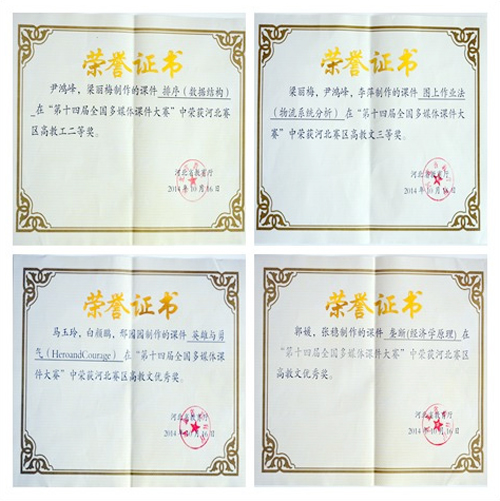 荣誉证书
尹鸿峰，梁丽梅制作的课件 排序（数据结构）
在“第十四届全国多媒体课件大赛”中荣获河北赛
区高教工二等奖。
河北省教育厅
2014年10月16日
荣誉证书
梁丽梅，尹鸿峰，李萍制作的课件 图上作业法
（物流系统分析） 在“第十四届全国多媒体课件大
赛”中荣获河北赛区高教文三等奖。
河北省教育厅
2014年10月16日
荣誉证书
马玉玲，白颜鹏，郡园园制作的课件 英雄与勇
气（HeroandCourage） 在“第十四届全国多媒体课
件大赛”中荣获河北赛区高教文优秀奖。
河北省教育厅
2014年10月16日
荣誉证书
郭媛，张稳制作的课件 垄断(经济学原理) 在
“第十四届全国多媒体课件大赛”中荣获河北赛区
高教文优秀奖。
河北省教育厅
2014年10月16日